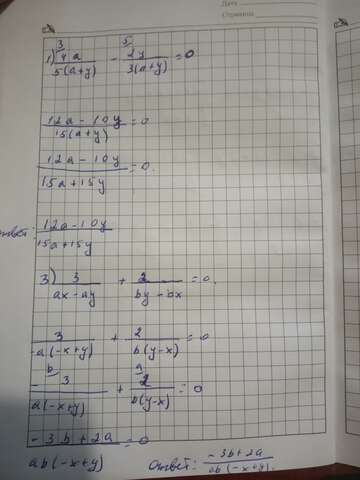 Дата
Отметка
1) 3 4a / 5(a+y) - 5 2y / 3(a+y) = 0
12a - 10y / 15(a+y) = 0
12a - 10y / 15a + 15y = 0.
ответ: 12a - 10y / 15a + 15y
3) 3 / ax - ay + 2 / by - bx = 0.
3 / -a(-x+y) + 2 / b(y-x) = 0
- b 3 / a(-x+y) + a 2 / b(y-x) = 0
-3b + 2a / ab(-x+y) = 0
ответ: -3b + 2a / ab(-x+y).